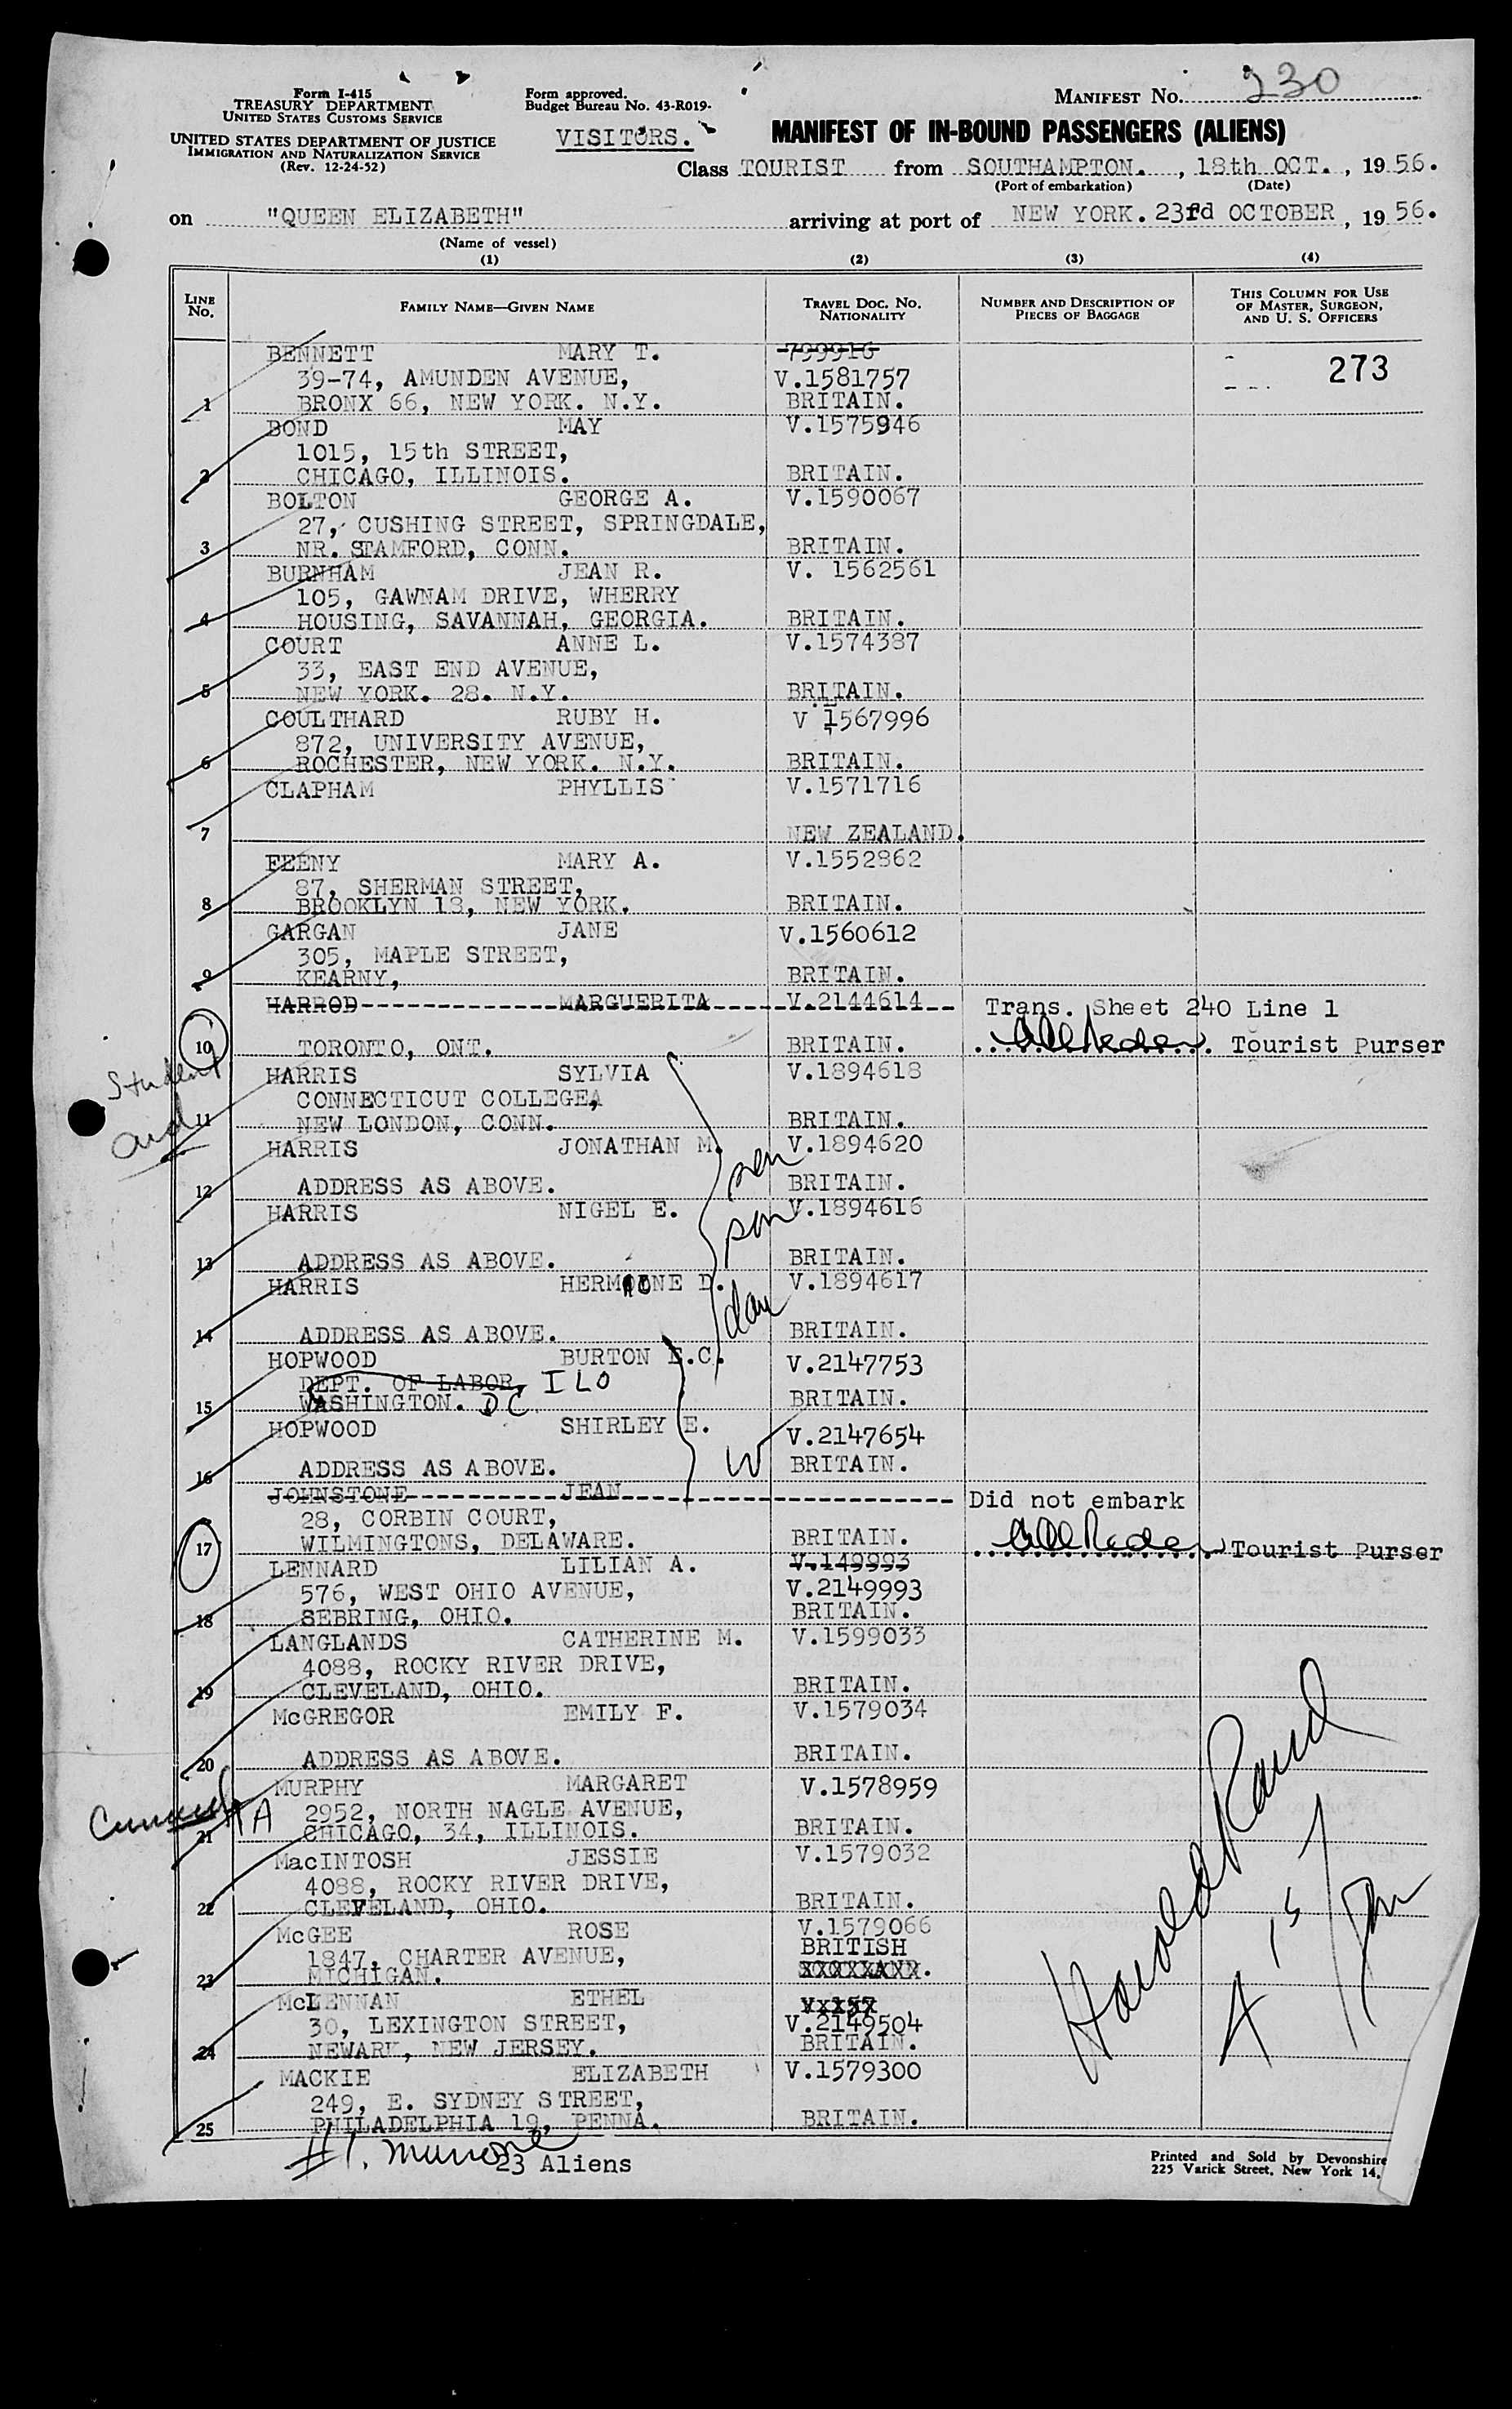 Form I-415
TREASURY DEPARTMENT
UNITED STATES CUSTOMS SERVICE
UNITED STATES DEPARTMENT OF JUSTICE
IMMIGRATION AND NATURALIZATION SERVICE
(Rev. 12-24-52)
Form approved.
Budget Bureau No. 43-R019-
VISITORS.
MANIFEST NO. 230
MANIFEST OF IN-BOUND PASSENGERS (ALIENS)
Class TOURIST from SOUTHAMPTON. , 18th OCT. , 19 56.
(Port of embarkation) (Date)
on "QUEEN ELIZABETH" arriving at port of NEW YORK. 23rd OCTOBER , 19 56.
(Name of vessel)
(1) (2) (3) (4)
LINE No. FAMILY NAME—GIVEN NAME TRAVEL DOC. NO. NATIONALITY NUMBER AND DESCRIPTION OF PIECES OF BAGGAGE THIS COLUMN FOR USE OF MASTER, SURGEON, AND U. S. OFFICERS
BENNETT MARY T. 799916
39-74, AMUNDEN AVENUE, V.1581757 273
1 BRONX 66, NEW YORK. N.Y. BRITAIN.
BOND MAY V.1575946
1015, 15th STREET,
2 CHICAGO, ILLINOIS. BRITAIN.
BOLTON GEORGE A. V.1590067
27, CUSHING STREET, SPRINGDALE,
3 NR. STAMFORD, CONN. BRITAIN.
BURNHAM JEAN R. V. 1562561
105, GAWNAM DRIVE, WHERRY
4 HOUSING, SAVANNAH, GEORGIA. BRITAIN.
COURT ANNE L. V.1574387
33, EAST END AVENUE,
5 NEW YORK. 28. N.Y. BRITAIN.
COULTHARD RUBY H. V 1567996
872, UNIVERSITY AVENUE,
6 ROCHESTER, NEW YORK. N.Y. BRITAIN.
CLAPHAM PHYLLIS V.1571716
7 NEW ZEALAND.
FEENY MARY A. V.1552862
87, SHERMAN STREET,
8 BROOKLYN 18, NEW YORK. BRITAIN.
GARGAN JANE V.1560612
305, MAPLE STREET,
9 KEARNY, BRITAIN.
HARROD MARGUERITA V.2144614 Trans. Sheet 240 Line 1
10 TORONTO, ONT. BRITAIN. Tourist Purser
Student
and
HARRIS SYLVIA V.1894618
CONNECTICUT COLLEGE,
11 NEW LONDON, CONN. BRITAIN.
HARRIS JONATHAN M. V.1894620
son
12 ADDRESS AS ABOVE. BRITAIN.
HARRIS NIGEL E. V.1894616
son
13 ADDRESS AS ABOVE. BRITAIN.
HARRIS HERMIONE D. V.1894617
dau
14 ADDRESS AS ABOVE. BRITAIN.
HOPWOOD BURTON E.C. V.2147753
DEPT. OF LABOR, ILO
15 WASHINGTON. DC BRITAIN.
HOPWOOD SHIRLEY E. V.2147654
W
16 ADDRESS AS ABOVE. BRITAIN.
JOHNSTONE JEAN Did not embark
28, CORBIN COURT,
17 WILMINGTONS, DELAWARE. BRITAIN. Tourist Purser
LENNARD LILIAN A. V.149993
576, WEST OHIO AVENUE, V.2149993
18 SEBRING, OHIO. BRITAIN.
LANGLANDS CATHERINE M. V.1599033
4088, ROCKY RIVER DRIVE,
19 CLEVELAND, OHIO. BRITAIN.
McGREGOR EMILY F. V.1579034
20 ADDRESS AS ABOVE. BRITAIN.
MURPHY MARGARET V.1578959
A 2952, NORTH NAGLE AVENUE,
21 CHICAGO, 34, ILLINOIS. BRITAIN.
MacINTOSH JESSIE V.1579032
4088, ROCKY RIVER DRIVE,
22 CLEVELAND, OHIO. BRITAIN.
McGEE ROSE V.1579066
1847, CHARTER AVENUE, BRITISH
23 MICHIGAN.
McLENNAN ETHEL
30, LEXINGTON STREET, V.2149504
24 NEWARK, NEW JERSEY. BRITAIN.
MACKIE ELIZABETH V.1579300
249, E. SYDNEY STREET,
25 PHILADELPHIA 19, PENNA. BRITAIN.
Harold Rand
23 Aliens
Printed and Sold by Devonshire
225 Varick Street, New York 14,